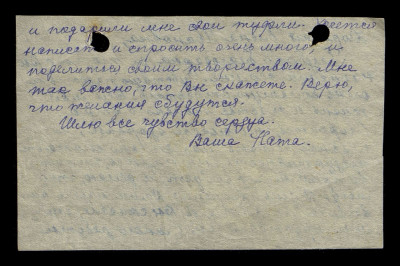 и подарили мне свои туфли. Хочется
написать и спросить очень много и
поделиться своим творчеством. Мне
так важно, что Вы скажете. Верю,
что желания сбудутся.
Шлю все чувство сердца.
Ваша Ната.